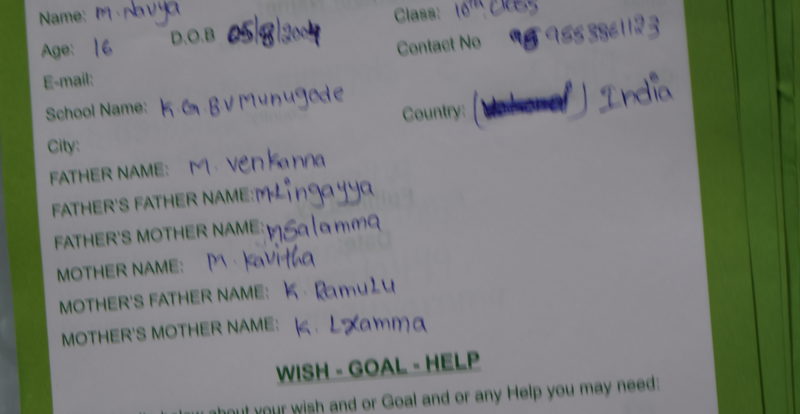 Name: M. Navya Class: 10th Class
Age: 16 D.O.B 05/8/2004 Contact No 9553861123
E-mail:
School Name: K G. B V Munugode Country: ( ) India
City:
FATHER NAME: M. Venkanna
FATHER'S FATHER NAME: M. Lingayya
FATHER'S MOTHER NAME: M Salamma
MOTHER NAME: M. Kavitha
MOTHER'S FATHER NAME: K. Ramulu
MOTHER'S MOTHER NAME: K. Lxamma
WISH - GOAL - HELP
below about your wish and or Goal and or any Help you may need: